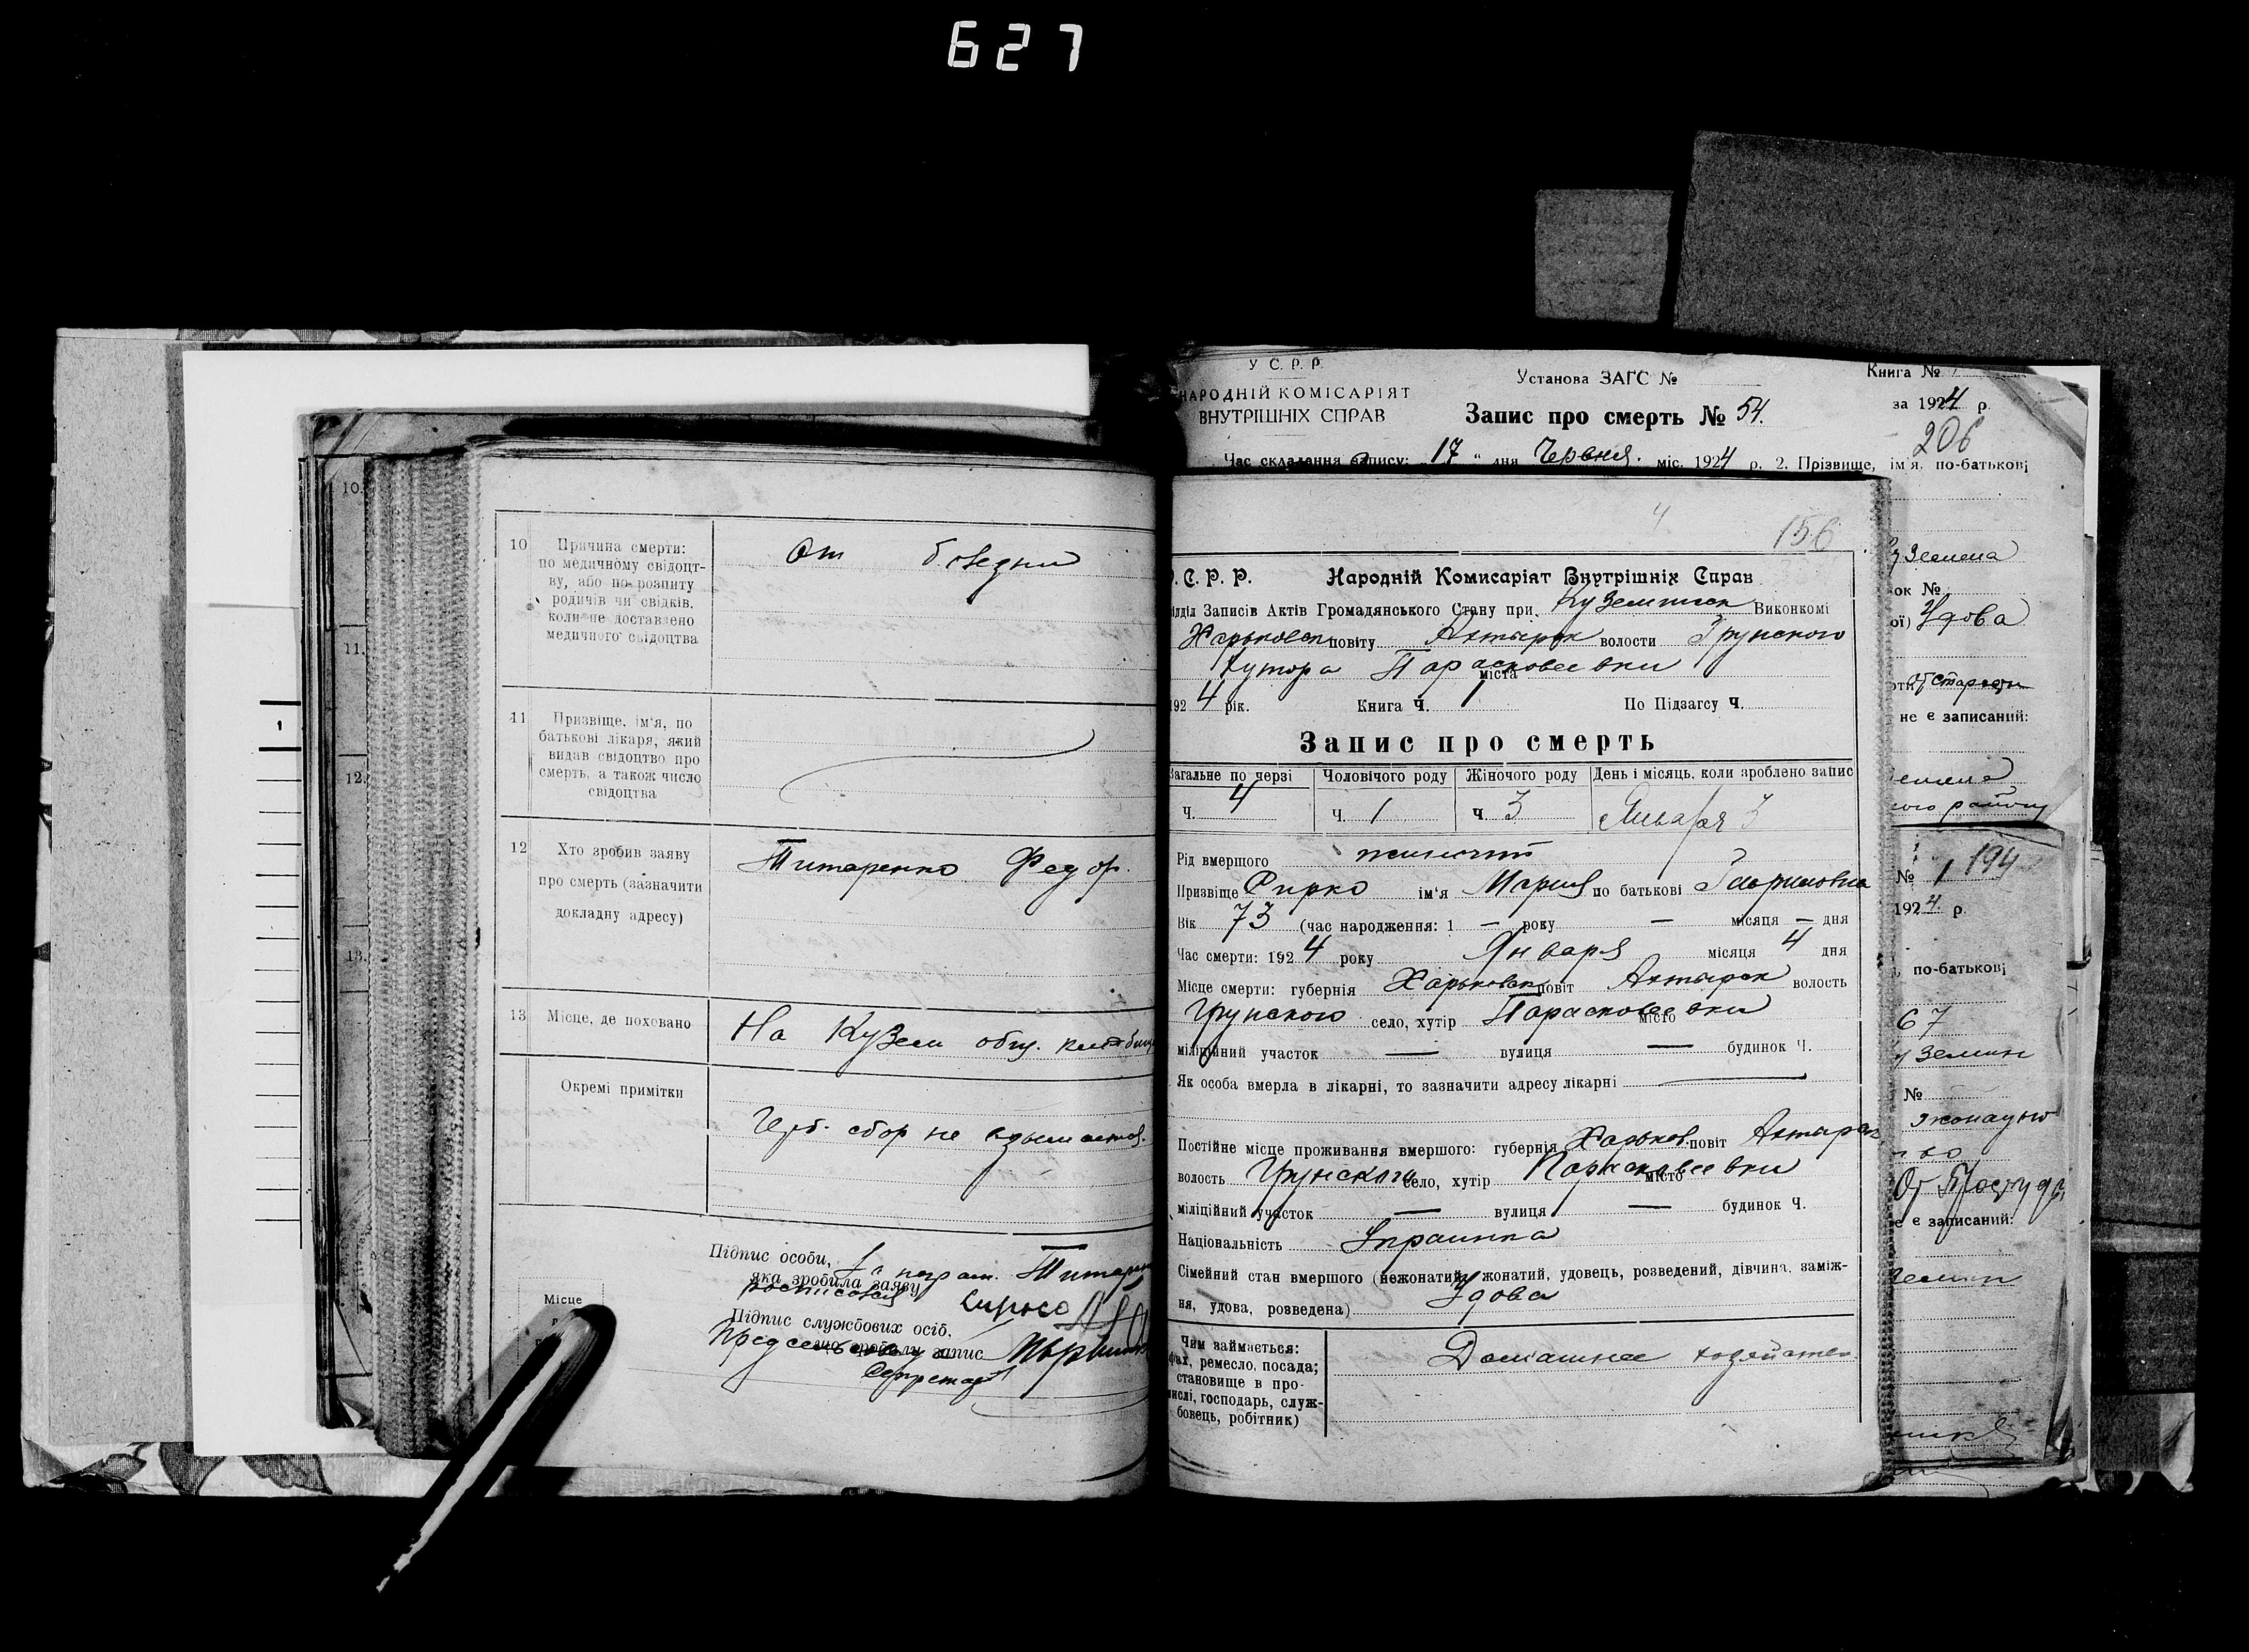 627
10.
11.
12.
13.
1
10
Причина смерти:
по медичному свідоцт-
ву, або по розпиту
родичів чи свідків,
коли не доставлено
медичного свідоцтва
От
11
Призвіще, ім'я, по
батькові лікаря, який
видав свідоцтво про
смерть, а також число
свідоцтва
12
Хто зробив заяву
про смерть (зазначити
докладну адресу)
Титаренко Федор.
13
Місце, де поховано
На Кузем общ.
Окремі примітки
Герб. сбор не
Підпис особи,
яка зробила заяву
Підпис службових осіб,
що зробили запис
Секретар
Місце
У С. Р. Р.
НАРОДНІЙ КОМІСАРІЯТ
ВНУТРІШНІХ СПРАВ
Установа ЗАГС №
Запис про смерть № 54.
Книга №
за 1924 р.
206
Час складання запису: „17“ дня Червня. міс. 1924 р. 2. Прізвище, ім'я, по-батькові
4
156
С. Р. Р. Народній Комисаріят Внутрішніх Справ
Записів Актів Громадянського Стану при Виконкомі
Харьковск повіту Ахтырск волости Грунского
Хутора Парасковеевки
міста
1924 рік. Книга Ч. 1 По Підзагсу Ч.
Запис про смерть
Загальне по черзі Чоловічого роду Жіночого роду День і місяць, коли зроблено запис
Ч. 4 Ч. 1 Ч. 3 Января 3
Рід вмершого
Призвіще Сирко ім'я Мария по батькові
Вік 73 (час народження: 1 — року — місяця — дня
Час смерти: 1924 року Января місяця 4 дня
Місце смерти: губернія Харьковск повіт Ахтырск волость
Грунского село, хутір Парасковеевки
місто
міліційний участок — вулиця — будинок Ч.
Як особа вмерла в лікарні, то зазначити адресу лікарні —
Постійне місце проживання вмершого: губернія Харьков. повіт Ахтырск
волость Грунского село, хутір Парасковеевки
місто
міліційний участок — вулиця — будинок Ч.
Національність Украинка
Сімейний стан вмершого (нежонатий, жонатий, удовець, розведений, дівчина, заміж-
ня, удова, розведена) Удова
Чим займається:
фах, ремесло, посада;
становище в про-
мислі, господарь, служ-
бовець, робітник)
Домашнее
ок №
ої) Удова
От старости
не є записаний:
ого району
194
№ 1
1924. р.
по-батькові
67
№
От Простуды
е є записаний: